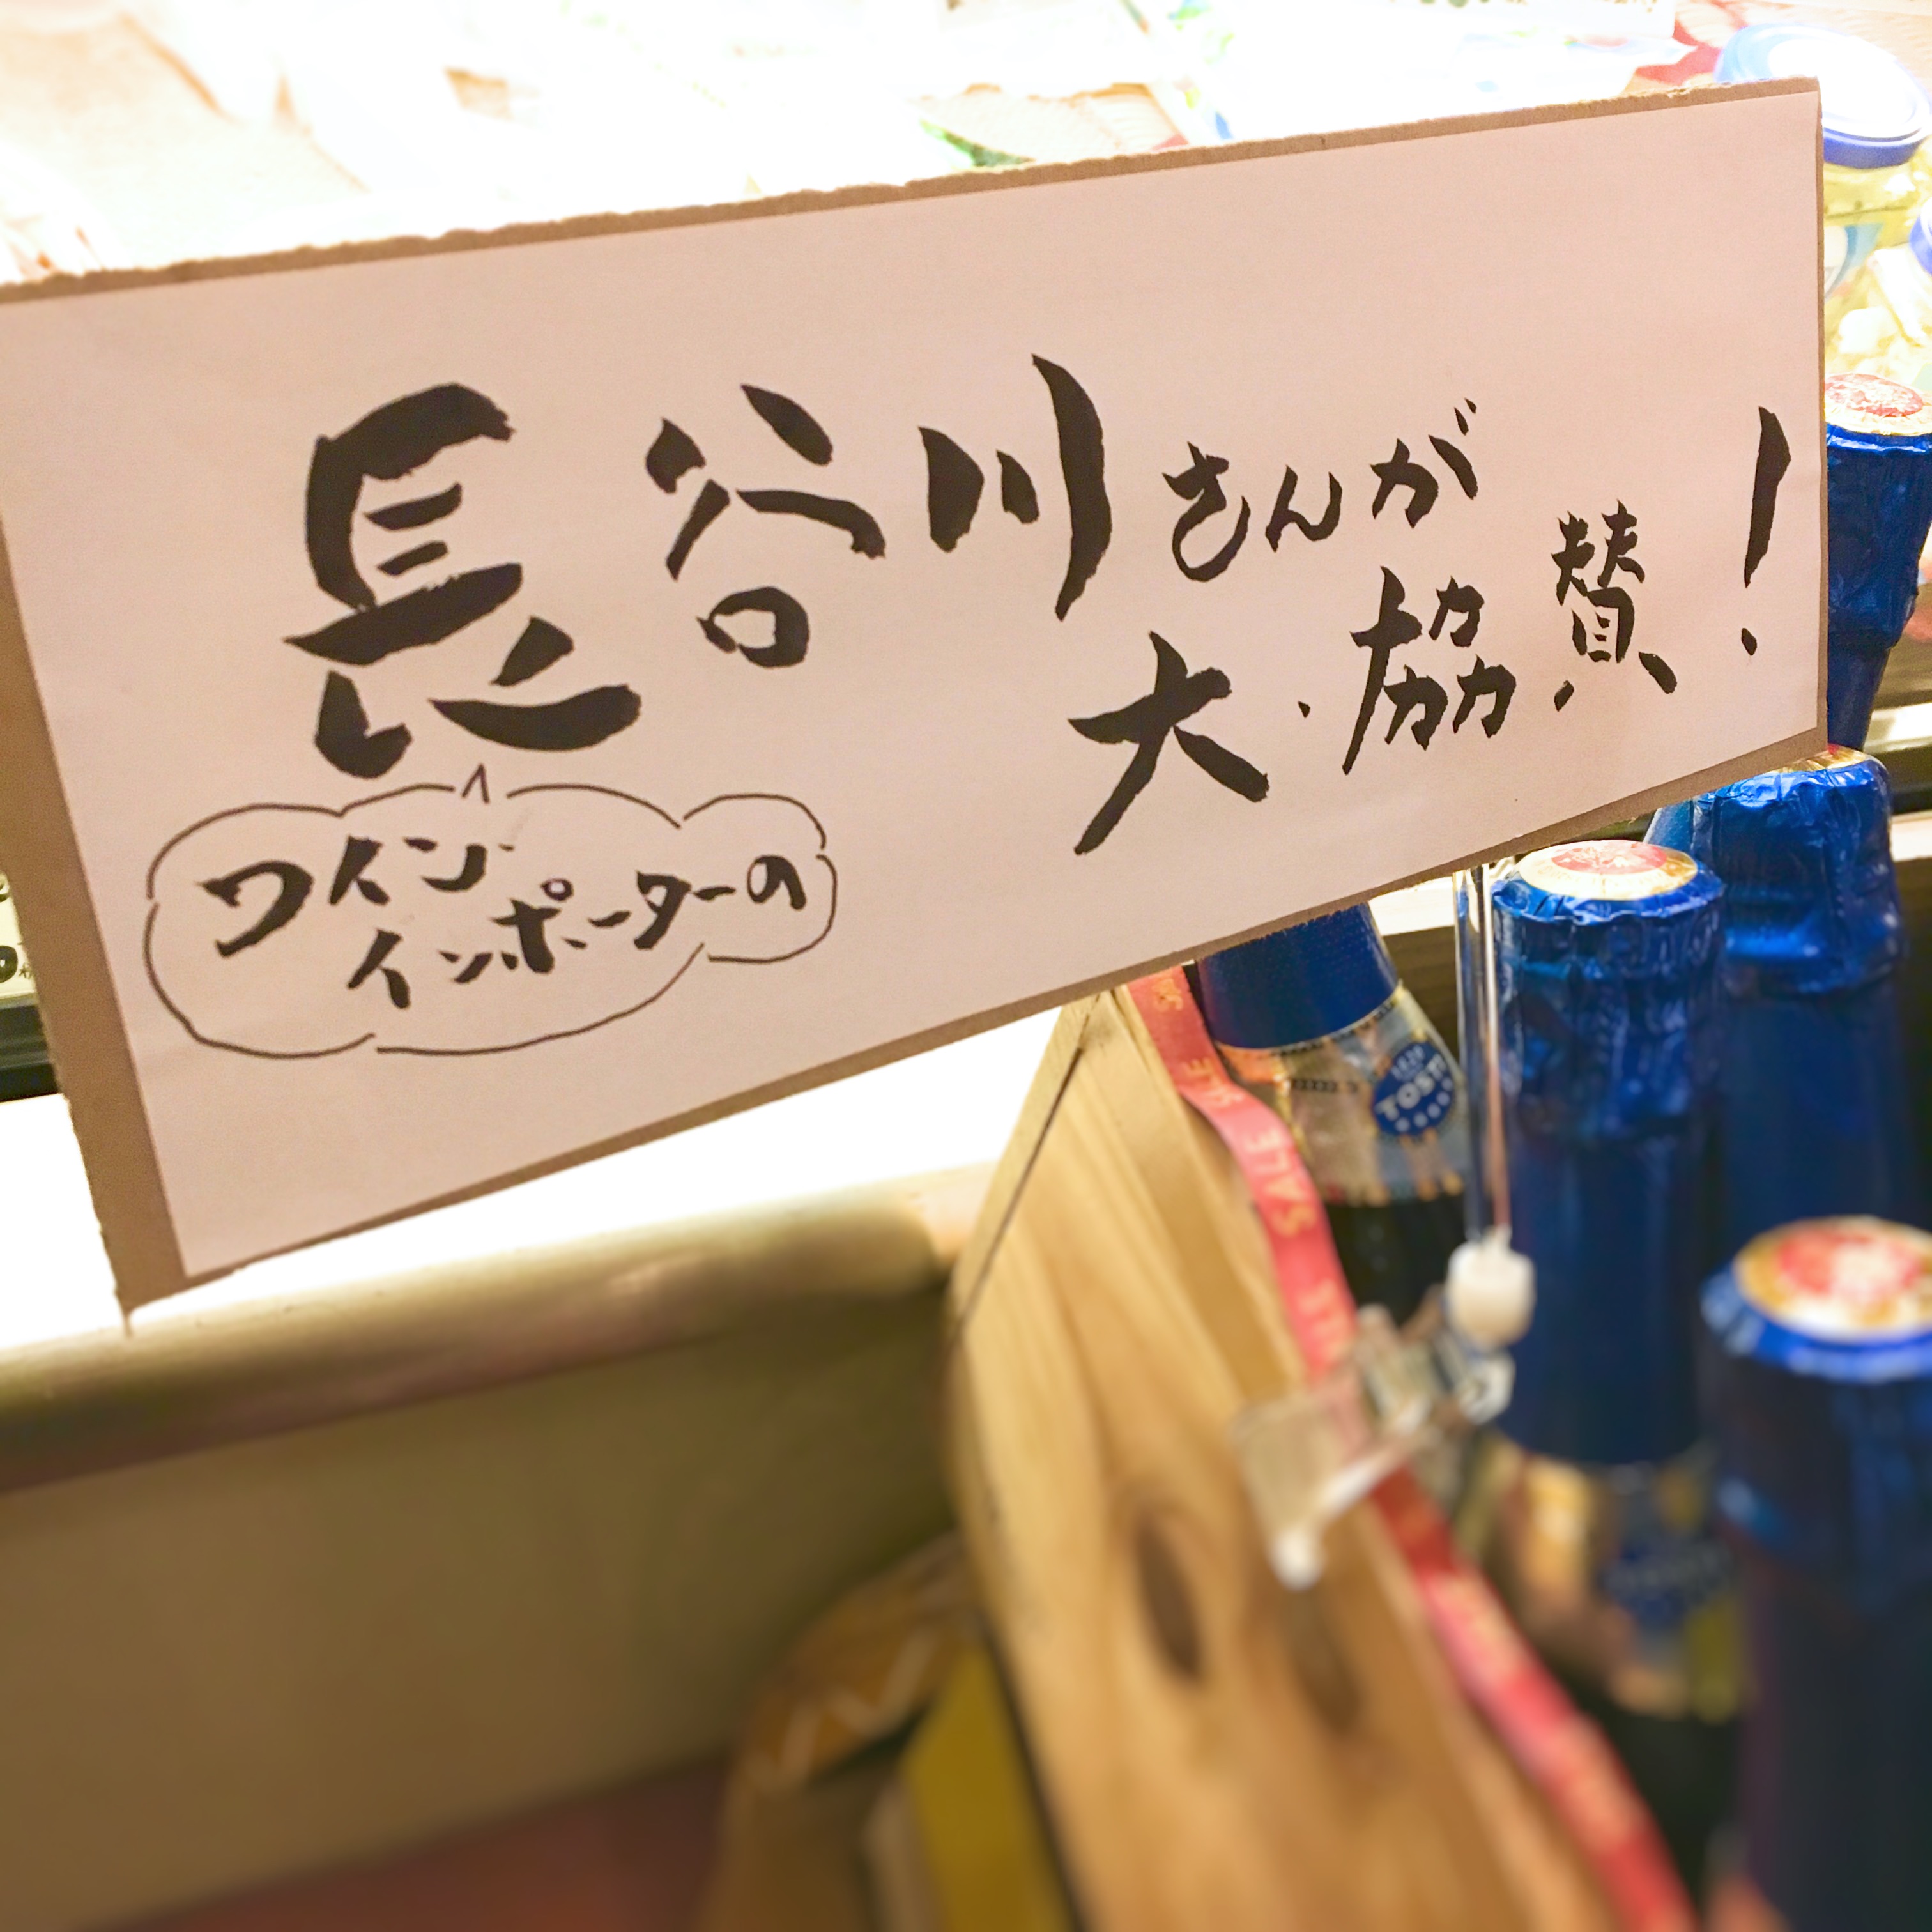 長谷川さんが
大・協賛!
ワイン
インポーターの
SALE
SALE
TOSTI